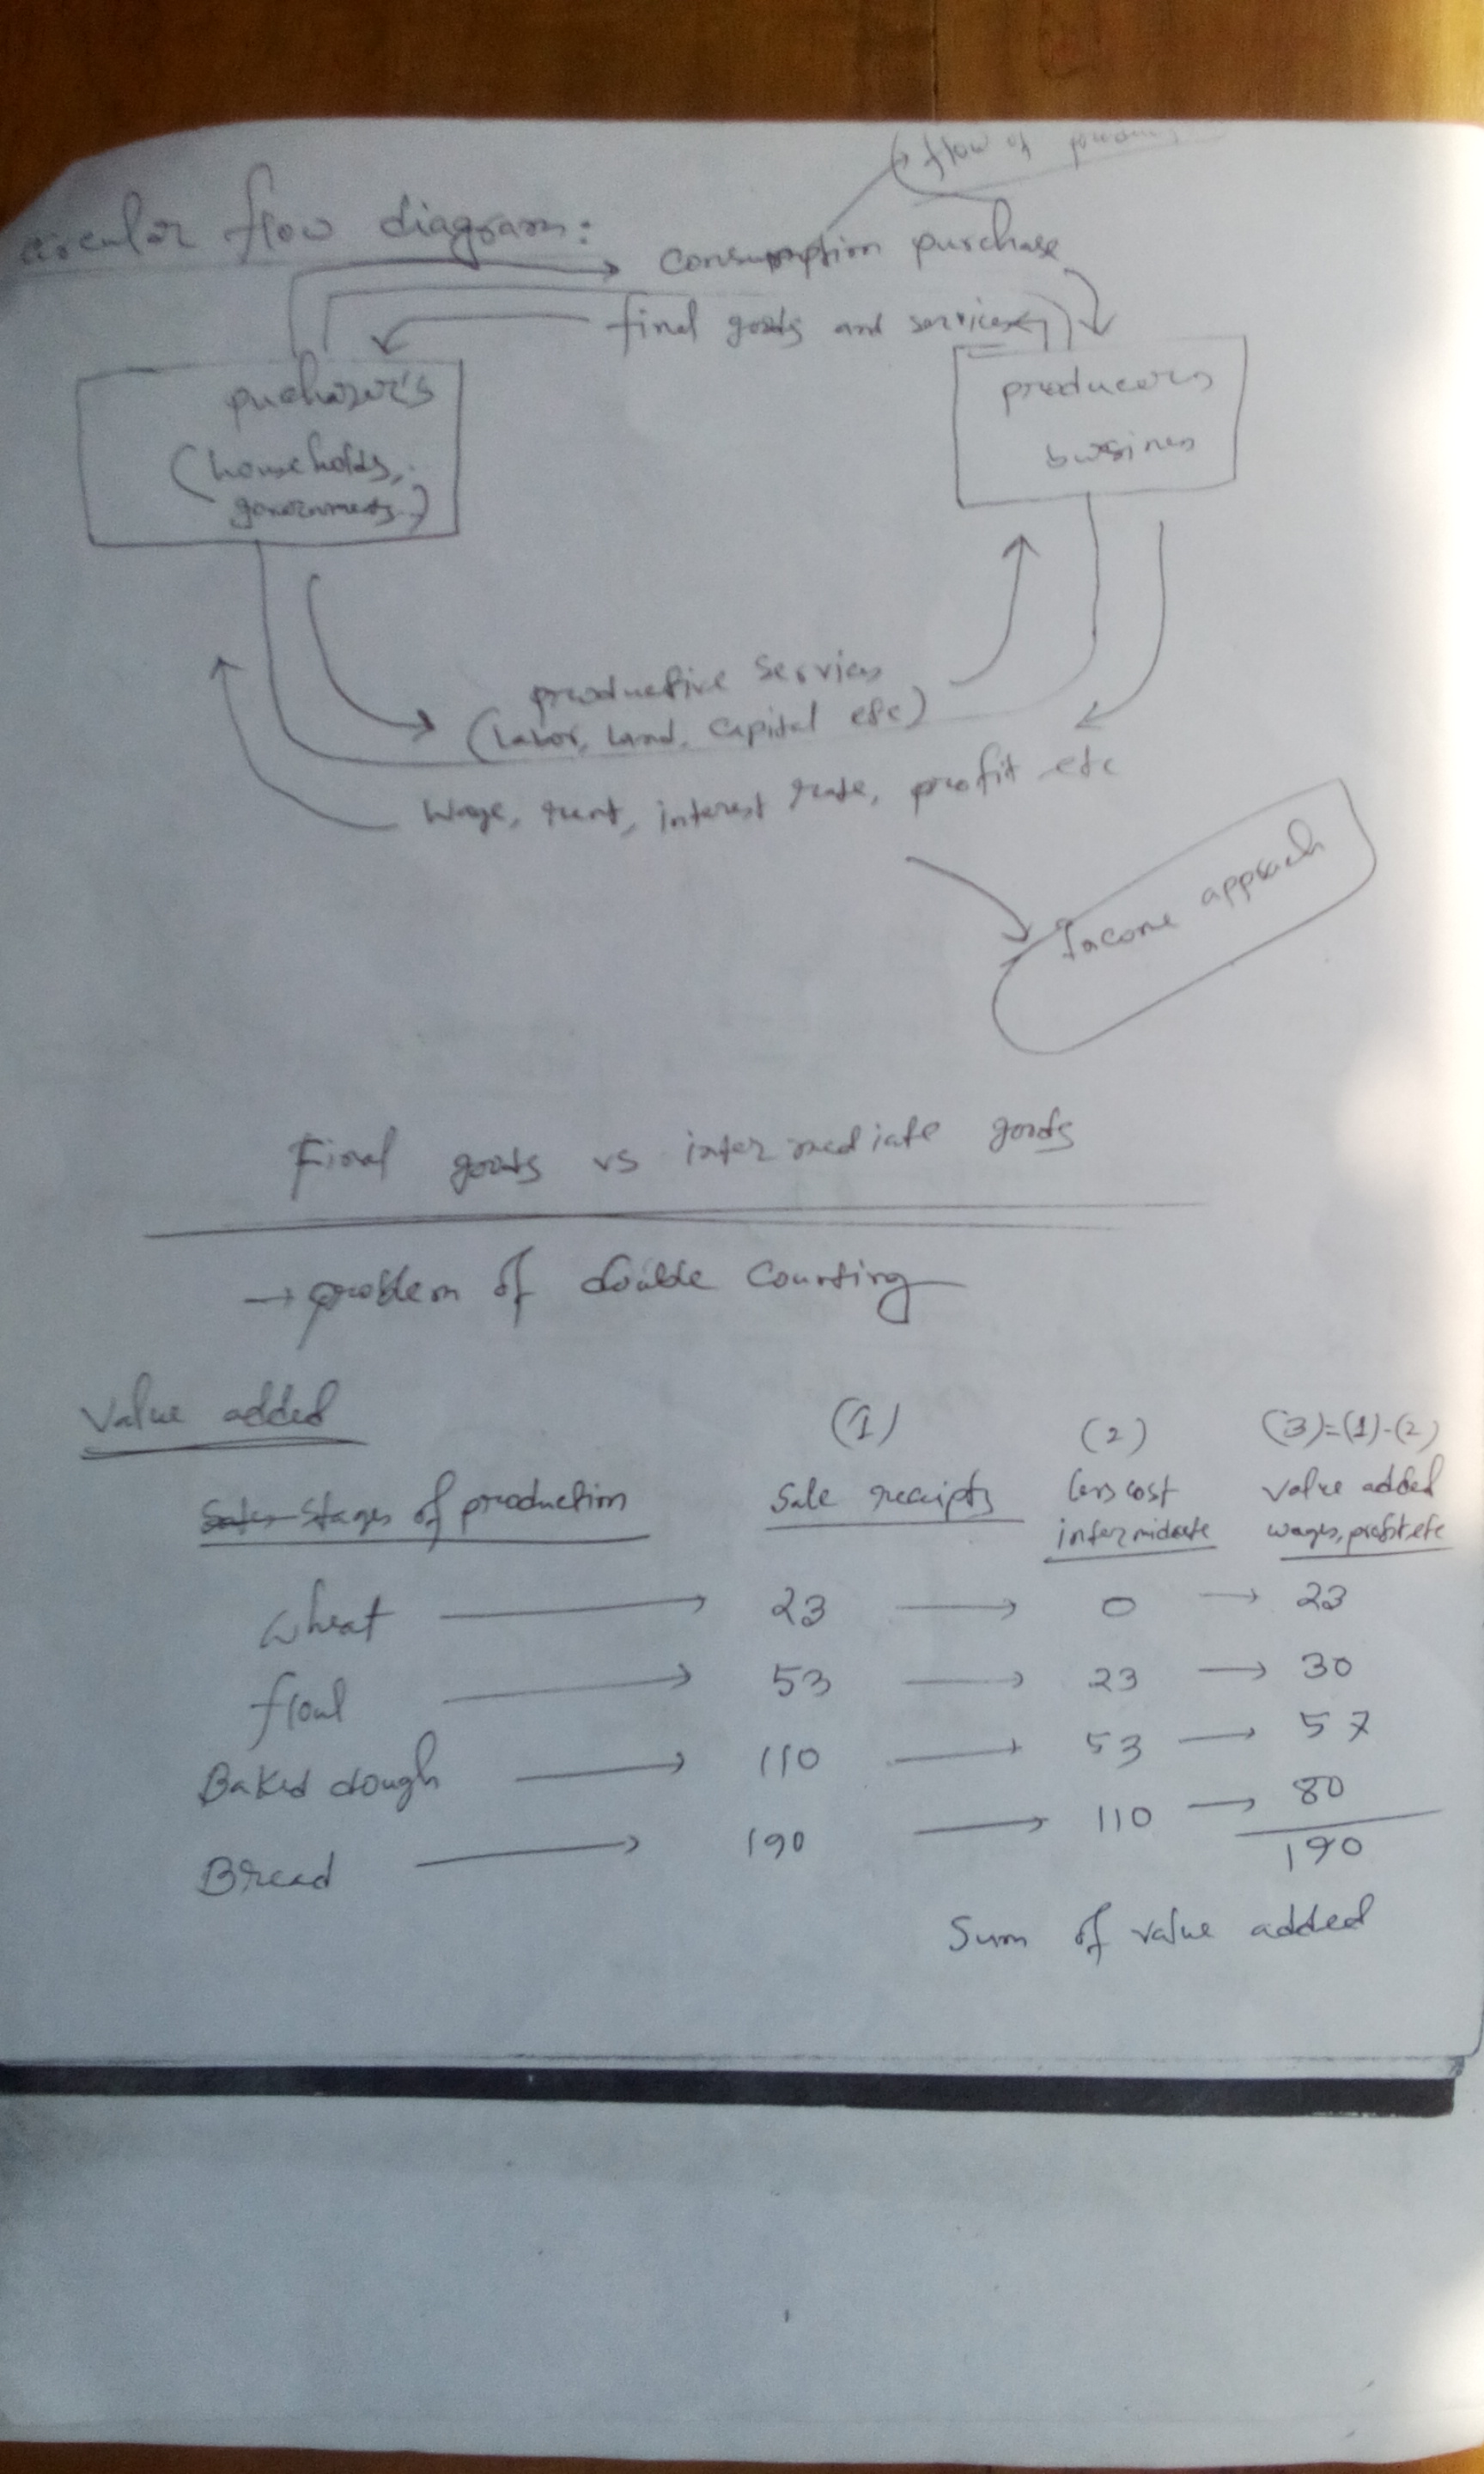 flow of
circular flow diagram:
consumption purchase
final goods and services
puchaser's
(households,
governments)
producers
business
productive services
(Labor, Land, Capital etc)
Wage, rent, interest rate, profit etc
Income approch
Final goods vs intermediate goods
→ problem of double counting
Value added
(1) (2) (3)=(1)-(2)
Stages of production Sale receipts less cost value added
intermidiate wages, profit etc
wheat → 23 → 0 → 23
flour → 53 → 23 → 30
Baked dough → 110 → 53 → 57
Bread → 190 → 110 → 80
190
Sum of value added